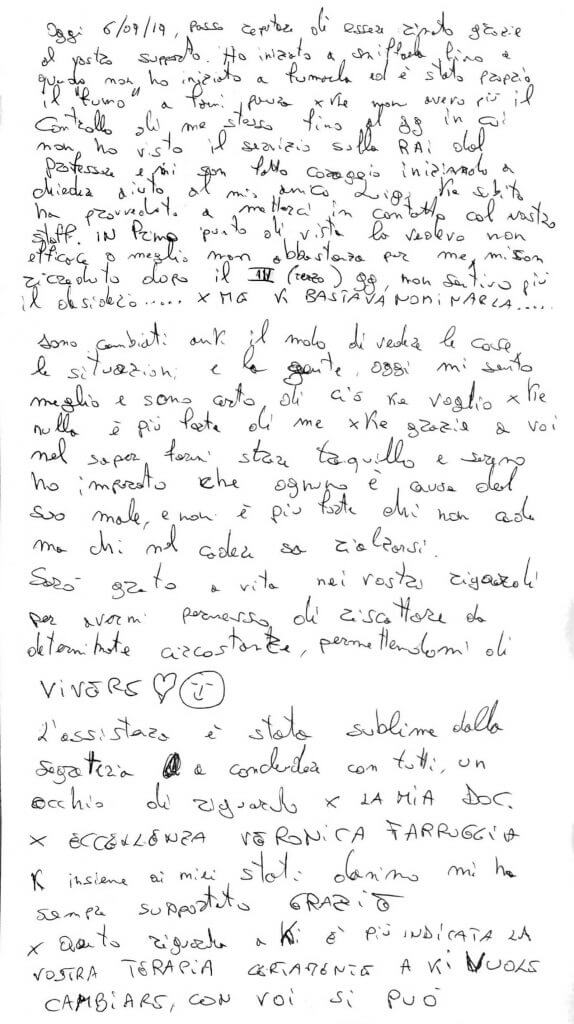 Oggi 6/09/19, posso ripetere di essere rinato grazie
al vostro supporto. Ho iniziato a sniffarla fino a
quando non ho iniziato a fumarla ed è stato proprio
il "fumo" a farmi paura xke non avevo più il
controllo di me stesso fino al gg in cui
non ho visto il servizio sulla RAI del
professore e mi son fatto coraggio iniziando a
chiedere aiuto al mio amico Luigi ke subito
ha provveduto a metterci in contatto col vostro
staff. IN Primo punto di vista la vedevo non
efficace o meglio non abbastanza per me, mi son
ricreduto dopo il III (terzo) gg, non sentivo più
il desiderio..... x ME K BASTAVA NOMINARLA....
sono cambiati ank il modo di vedere le cose
le situazioni e la gente, oggi mi sento
meglio e sono certo di ciò ke voglio xke
nulla è più forte di me xke grazie a voi
nel saper farmi stare tranquillo e sereno
ho imparato che ognuno è causa del
suo male, e non è più forte chi non cade
ma chi nel cadere sa rialzarsi.
Sarò grato a vita nei vostri riguardi
per avermi permesso di riscattare da
determinate circostanze, permettendomi di
VIVERE
L'assistenza è stata sublime dalla
segreteria a concludere con tutti, un
occhio di riguardo x LA MIA DOC.
x ECCELLENZA VERONICA FARRUGGIA
K insieme ai miei stati danimo mi ha
sempre supportato GRAZIE
x Quanto riguarda a Ki È PIÙ INDICATA LA
VOSTRA TERAPIA CERTAMENTE A KI VUOLE
CAMBIARE, CON VOI SI PUÒ